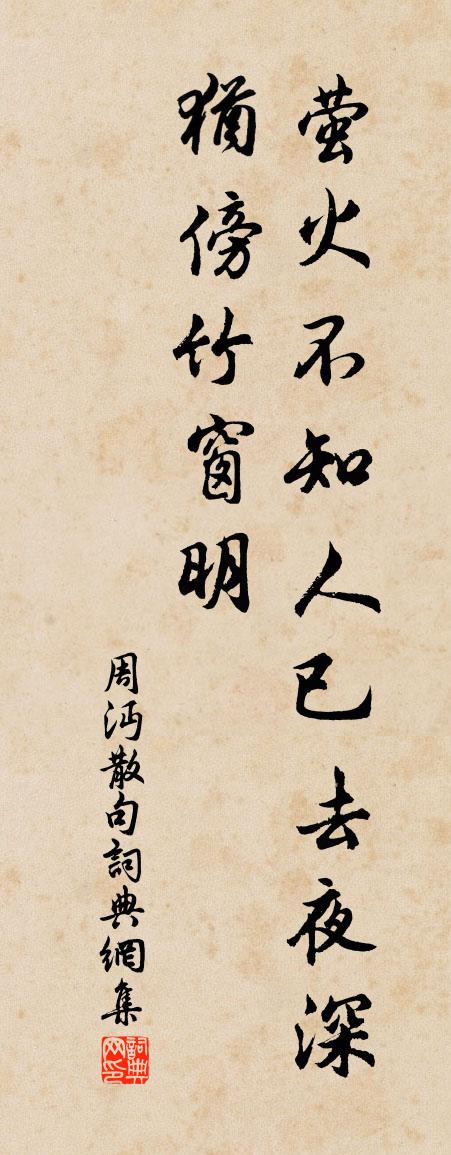 萤火不知人已去夜深
猶傍竹窗明
周沔散句詞典網集
詞典网印